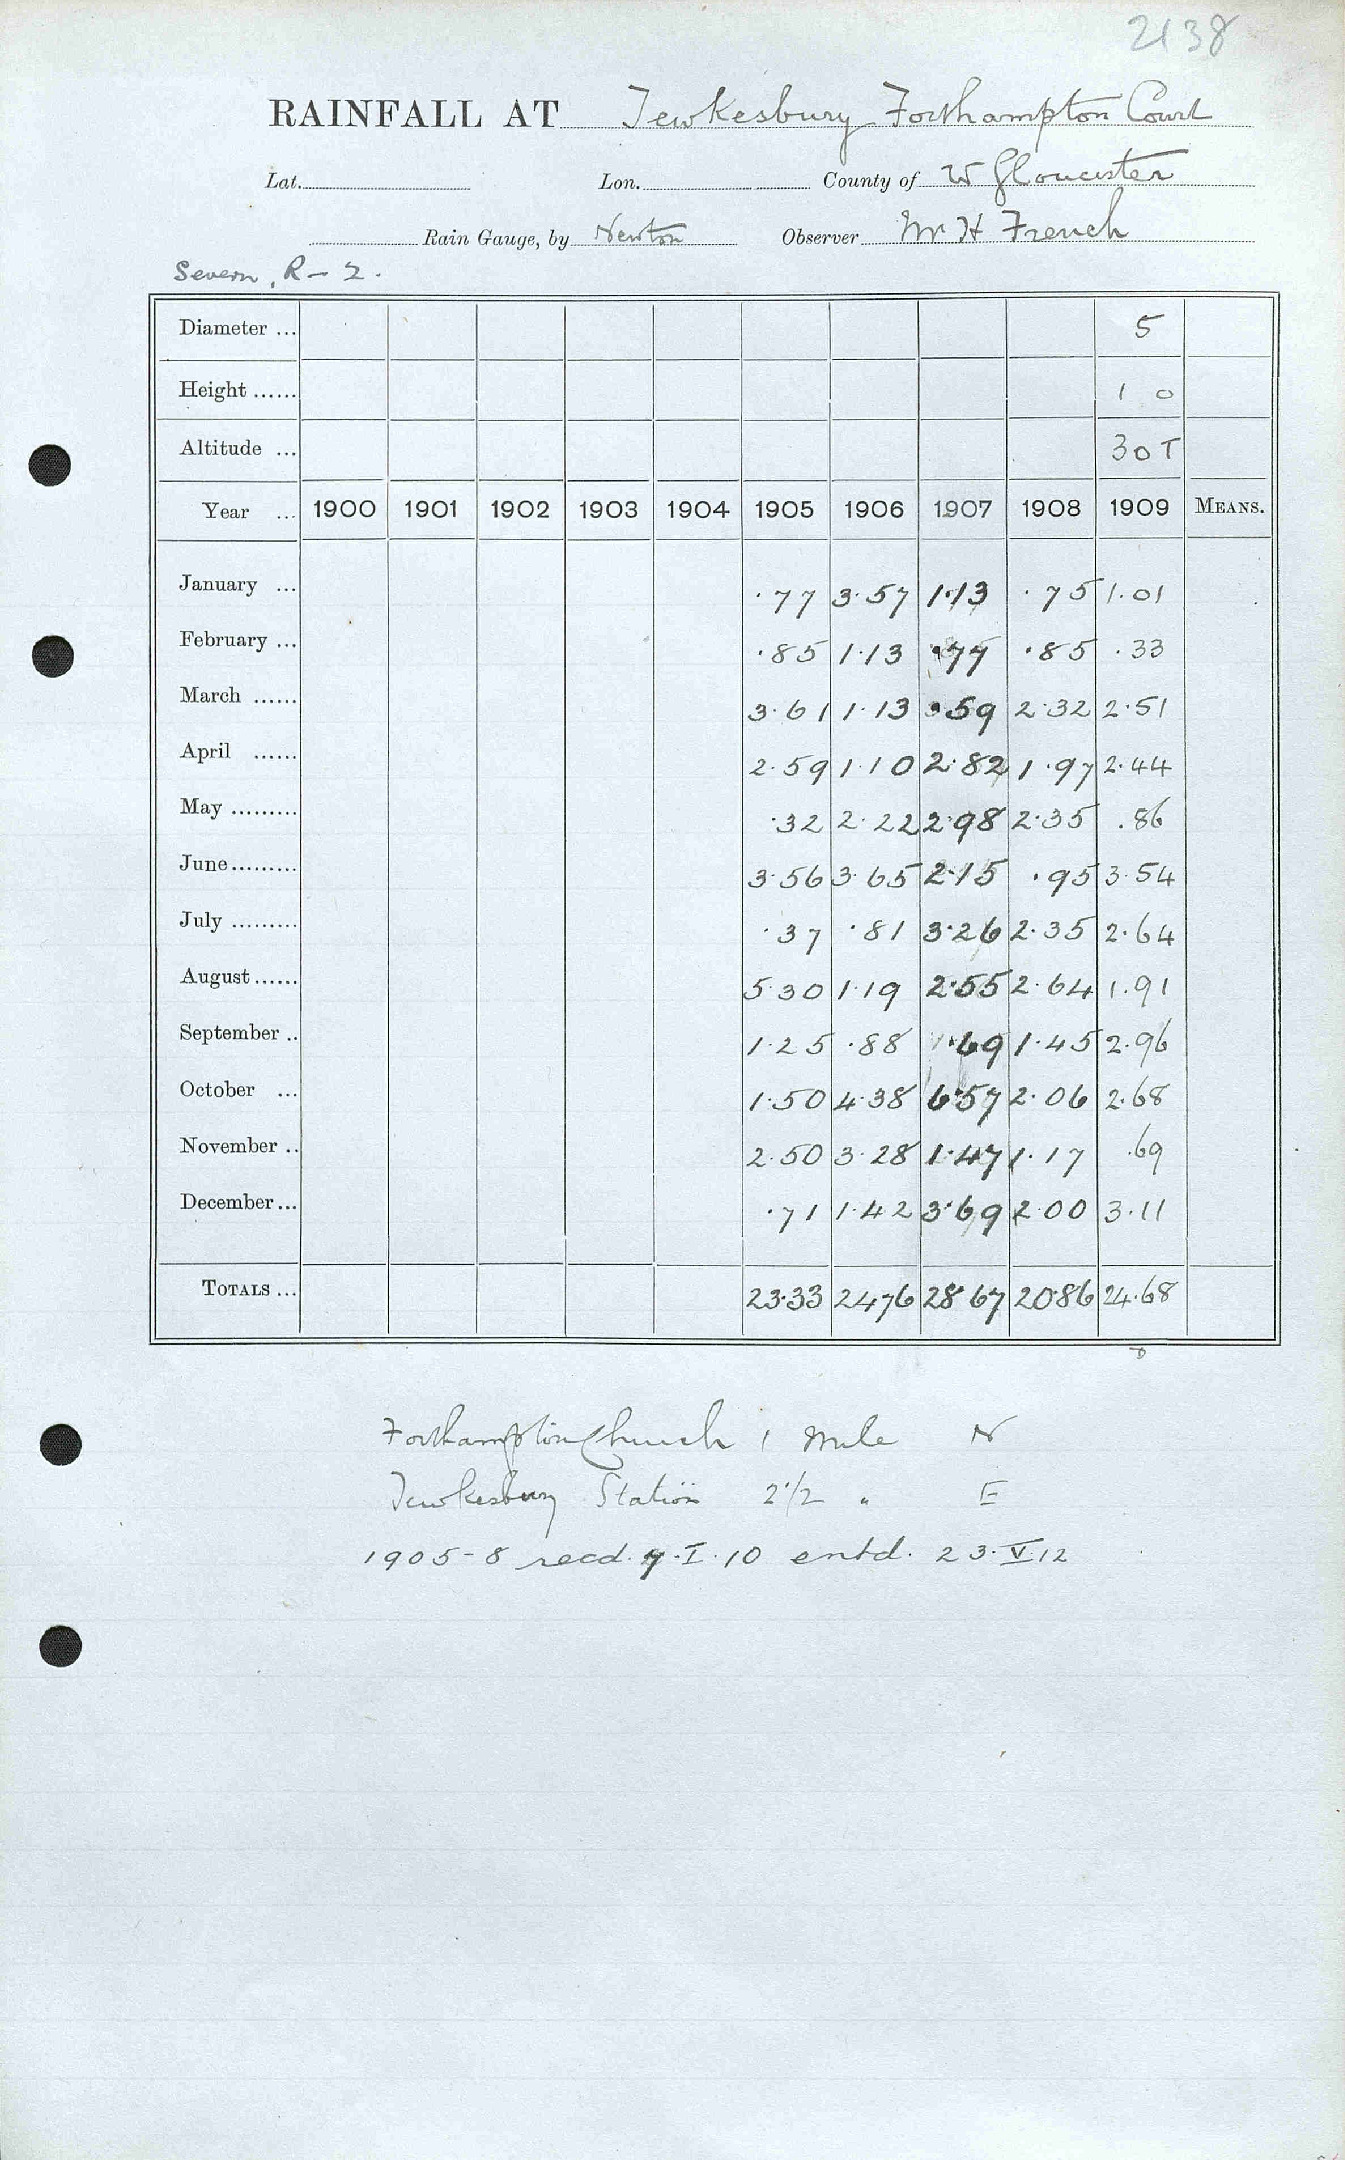 2138
RAINFALL AT Tewkesbury Forthampton Court
Lat. Lon. County of W Gloucester
Rain Gauge, by Newton Observer Mr H French
Severn, R – 2.
Diameter ... 5
Height ...... 1 0
Altitude ... 30T
Year ... 1900 1901 1902 1903 1904 1905 1906 1907 1908 1909 MEANS.
January ... .77 3.57 1.13 .75 1.01
February ... .85 1.13 .77 .85 .33
March ...... 3.61 1.13 .59 2.32 2.51
April ...... 2.59 1.10 2.82 1.97 2.44
May ......... .32 2.22 2.98 2.35 .86
June ......... 3.56 3.65 2.15 .95 3.54
July ......... .37 .81 3.26 2.35 2.64
August ...... 5.30 1.19 2.55 2.64 1.91
September .. 1.25 .88 .69 1.45 2.96
October ... 1.50 4.38 6.57 2.06 2.68
November .. 2.50 3.28 1.47 1.17 .69
December ... .71 1.42 3.69 2.00 3.11
TOTALS ... 23.33 24.76 28.67 20.86 24.68
Forthampton Church 1 Mile N
Tewkesbury Station 2 1/2 " E
1905-8 recd. 7.I.10 entd. 23.V.12